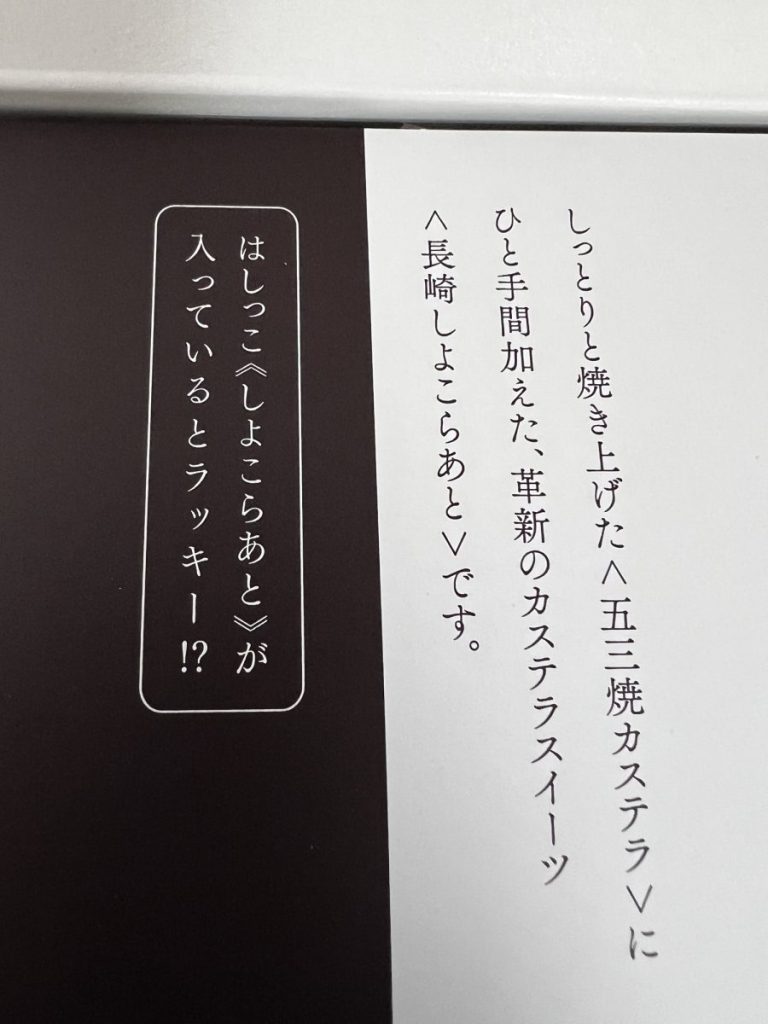 しっとりと焼き上げた＜五三焼カステラ＞に
ひと手間加えた、革新のカステラスイーツ
＜長崎しよこらあと＞です。
はしっこ《しよこらあと》が
入っているとラッキー⁉